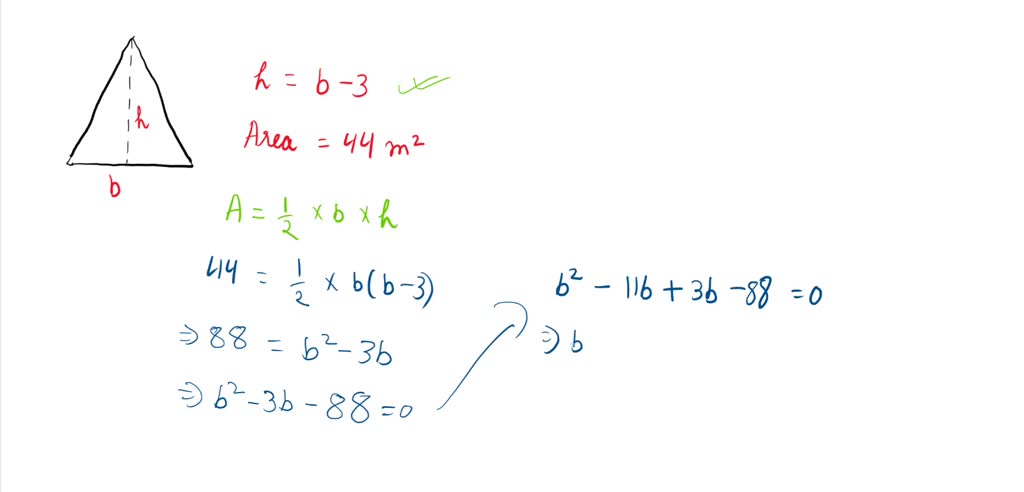 h
b
h = b - 3
Area = 44 m²
A = 1/2 × b × h
44 = 1/2 × b(b-3)
⇒ 88 = b² - 3b
⇒ b² - 3b - 88 = 0
b² - 11b + 3b - 88 = 0
⇒ b